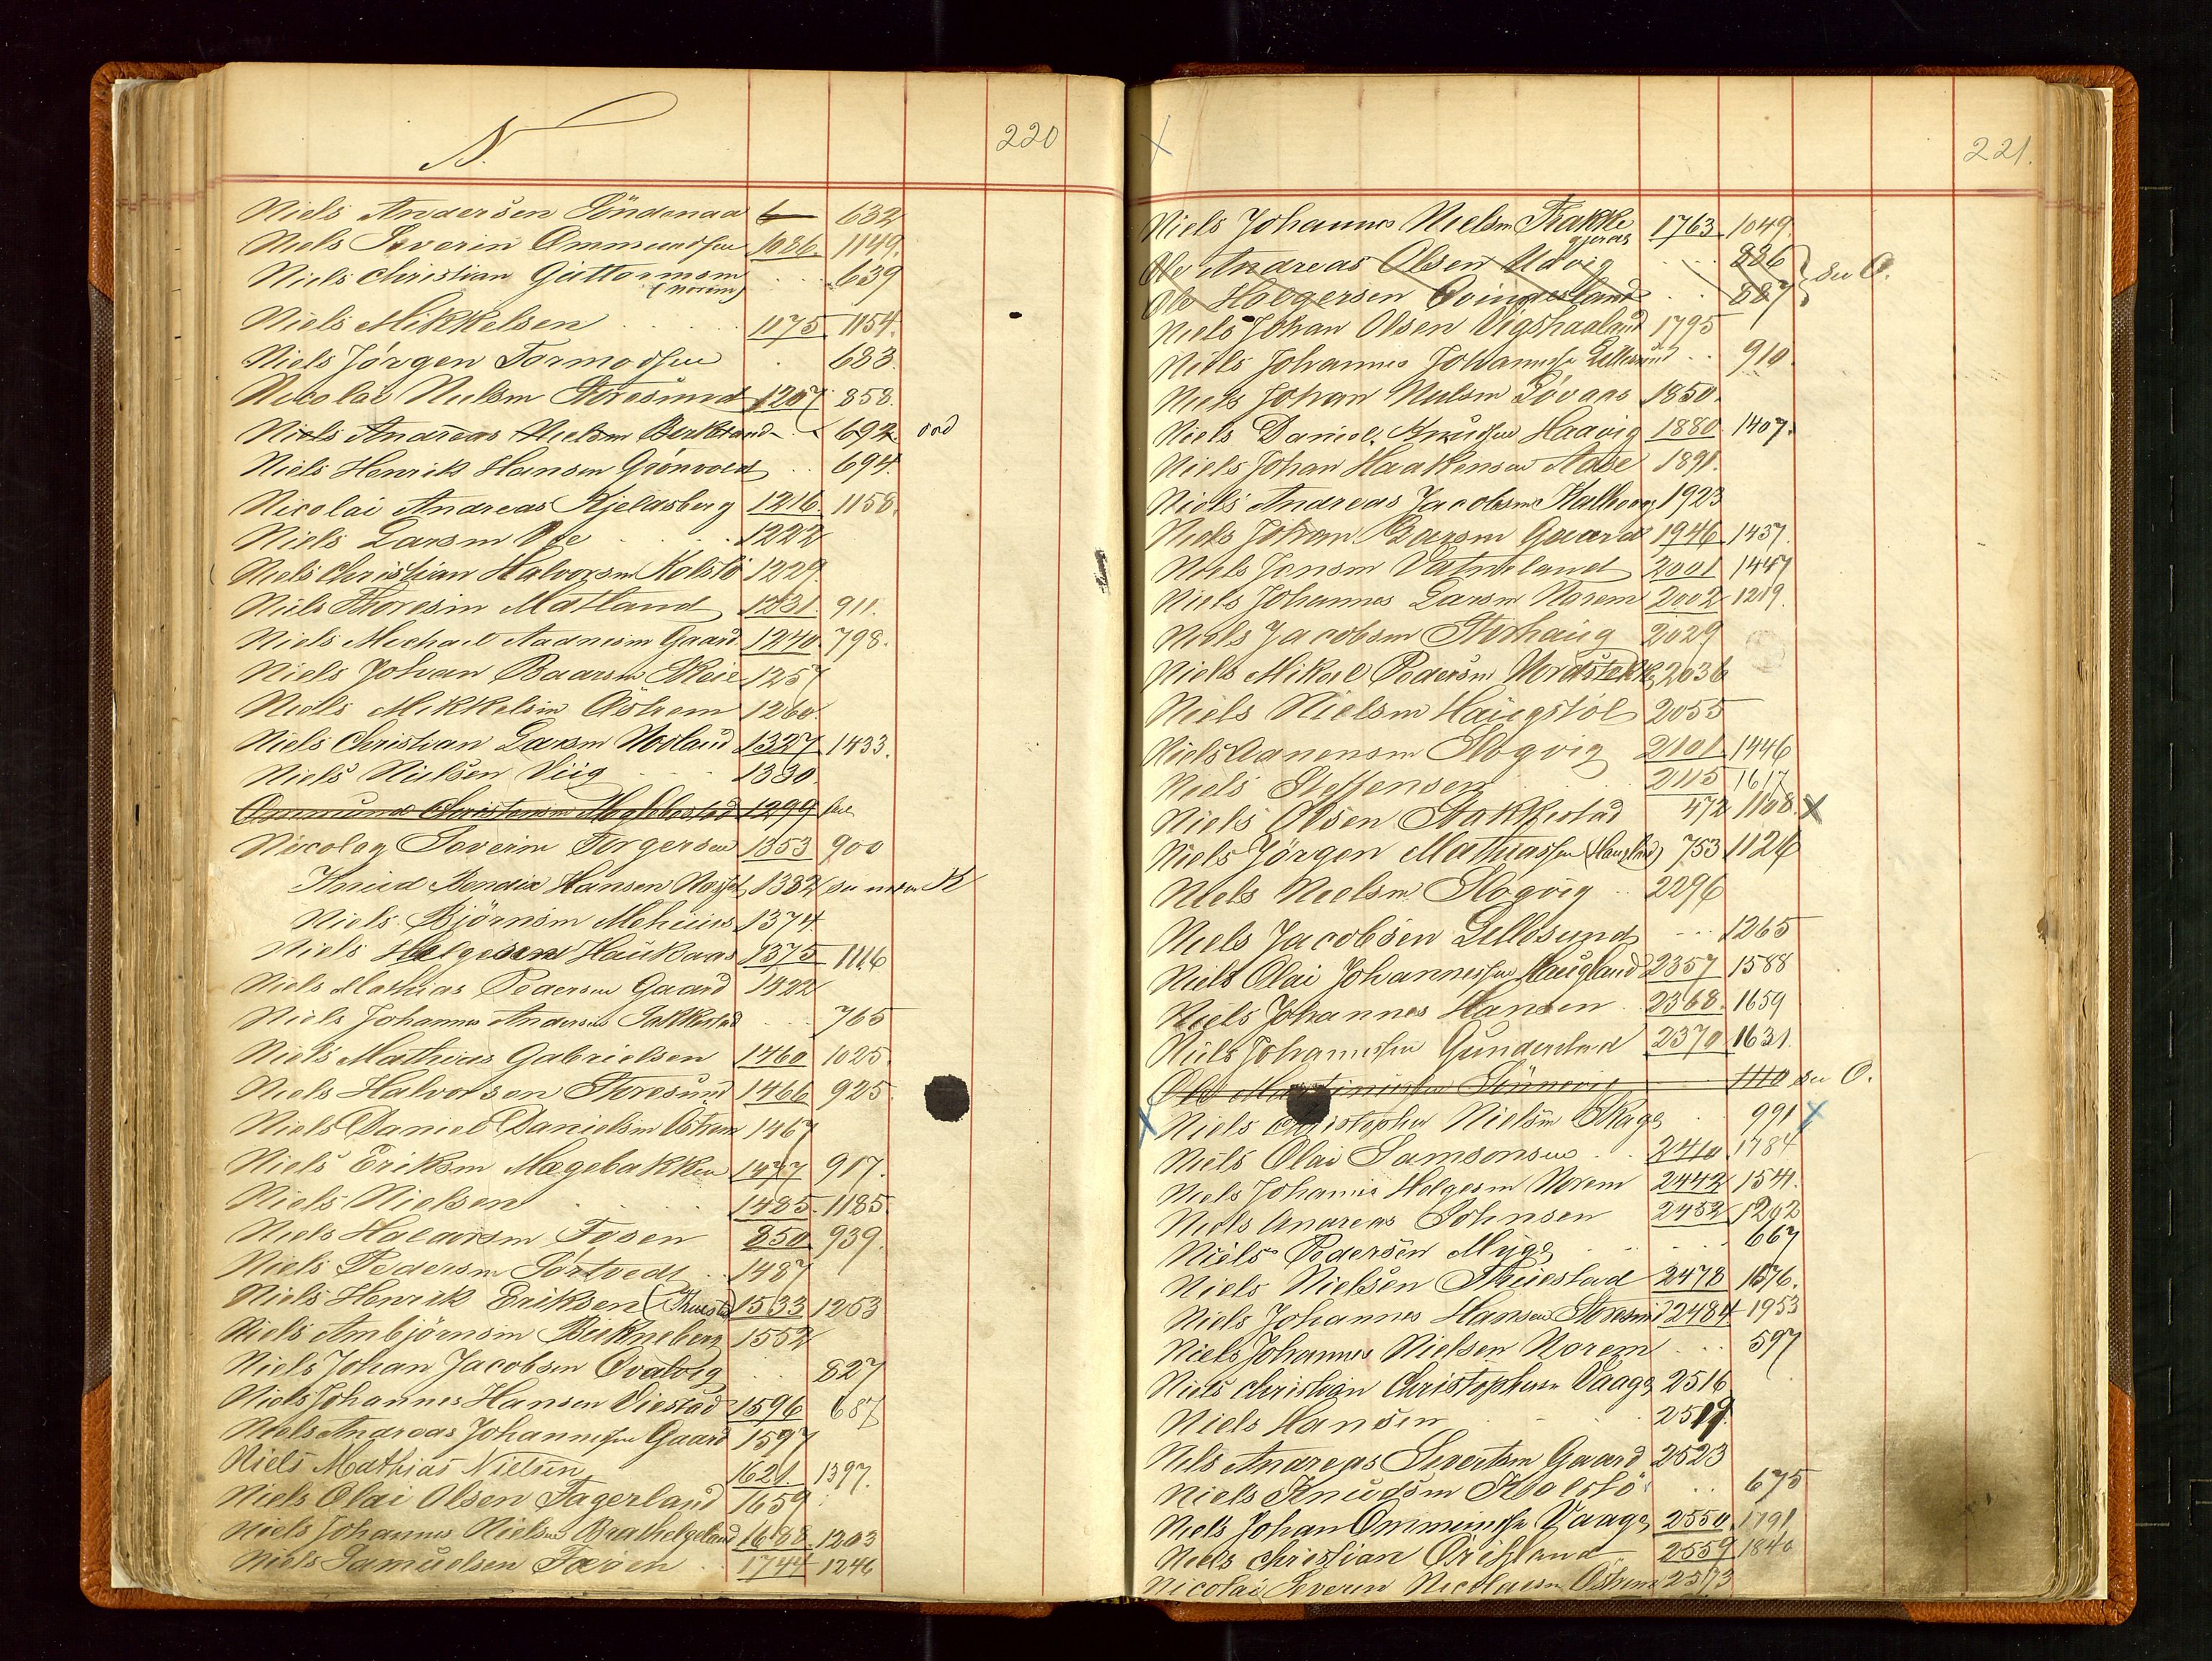 N.
220
Niels Andersen Söndenaa 6 632
Niels Severin Ommundsen 1086. 1149.
Niels Christian Guttormsen 639
(Norem)
Niels Mikkelsen 1175 1154.
Niels Jörgen Tormodsen 683.
Nicolai Nielsen Storesund 1207 858.
Niels Andreas Nielsen Birkeland 692
Niels Henrik Hansen Grönvold 694.
Nicolai Andreas Kjeldsberg 1216. 1158.
Niels Larsen Vee 1222
Niels Christian Halvorsen Kolstö 1229.
Niels Thoresen Matland 1231. 911.
Niels Michael Aadnesen Gaard 1240. 798.
Niels Johan Baarsen Skeie 1257
Niels Mikkelsen Östrem 1260.
Niels Christian Larsen 1327 1433.
Niels Nielsen Viig 1330.
Ommund Christensen 1299
Nicolay Severin Torgersen 1353 900
Knud Bendix Hansen 1382 se under K
Niels Bjørnsen 1374
Niels Helgesen Haukaas 1375 1116
Niels Mathias Pedersen Gaard 1422
Niels Johannes Andersen 765
Niels Mathias Gabrielsen 1460 1025.
Niels Halvorsen Storesund 1466 925
Niels Daniel Danielsen Östrem 1467
Niels Eriksen Magebakken 1477 917.
Niels Nielsen 1485. 1185.
Niels Haldorsen Fosen 850 939.
Niels Pedersen Sörtvedt 1487
Niels Henrik Eriksen 1533 1253
Niels Ambjörnsen 1552
Niels Johan Jacobsen Qvalvig 827
Niels Johannes Hansen Viestad 1596 687
Niels Andreas Johannessen Gaard 1597
Niels Mathias Nielsen 1621 1397.
Niels Olai Olsen Fagerland 1659
Niels Johannes Nielsen Brathelgeland 1688 1203
Niels Samuelsen Fæøen 1744 1246
221.
Niels Johannes Nielsen Stakke 1763 1049.
gjerde
Ole Andreas Olsen Udvig 886
Ole Holgersen Qvinnesland 887 } see O.
Niels Johan Olsen Vigshaaland 1795
Niels Johannes Johannessen Lillesund 910.
Niels Johan Nielsen Sövaas 1850.
Niels Daniel Knudsen Haavig 1880. 1407.
Niels Johan Haakensen Aase 1891.
Niels Andreas Jacobsen 1923
Niels Johan Baarsen Gaard 1946 1437.
Niels Jonsen Vatneland 2001 1447
Niels Johannes Larsen Norem 2002 1219.
Niels Jacobsen Storhaug 2029
Niels Mikal Pedersen Nordstokke 2036
Niels Nielsen Haugstöl 2055
Niels Aanensen Stogvig 2101 1446
Niels Steffensen 2115 1617
Niels Olsen Stakkestad 472 1108. X
Niels Jörgen Mathiassen (Haugland) 753 1126
Niels Nielsen Stogvig 2296
Niels Jacobsen Lillesund 1265
Niels Olai Johannessen Haugland 2357 1588
Niels Johannes Hansen 2368. 1659
Niels Johannessen Gunderstad 2370 1631.
Ole 1110 see O.
X Niels Christopher Nielsen Skage 991 X
Niels Olai Samsonsen 2410 1784
Niels Johannes Helgesen Norem 2442 1541.
Niels Andreas Johnsen 2452 1202
Niels Pedersen Myge 667
Niels Nielsen Thuestad 2478 1576.
Niels Johannes Hansen Storesund 2484 1953
Niels Johannes Nielsen Norem 597
Niels Christian Christophersen Vaage 2516
Niels Hansen 2519.
Nils Andreas Sivertsen Gaard 2523
Niels Knudsen Kolstö 675
Niels Johan Ommundsen Vaage 2550 1791
Niels Christian 2559 1840
Nicolai Severin Nicolaisen Östrem 2573